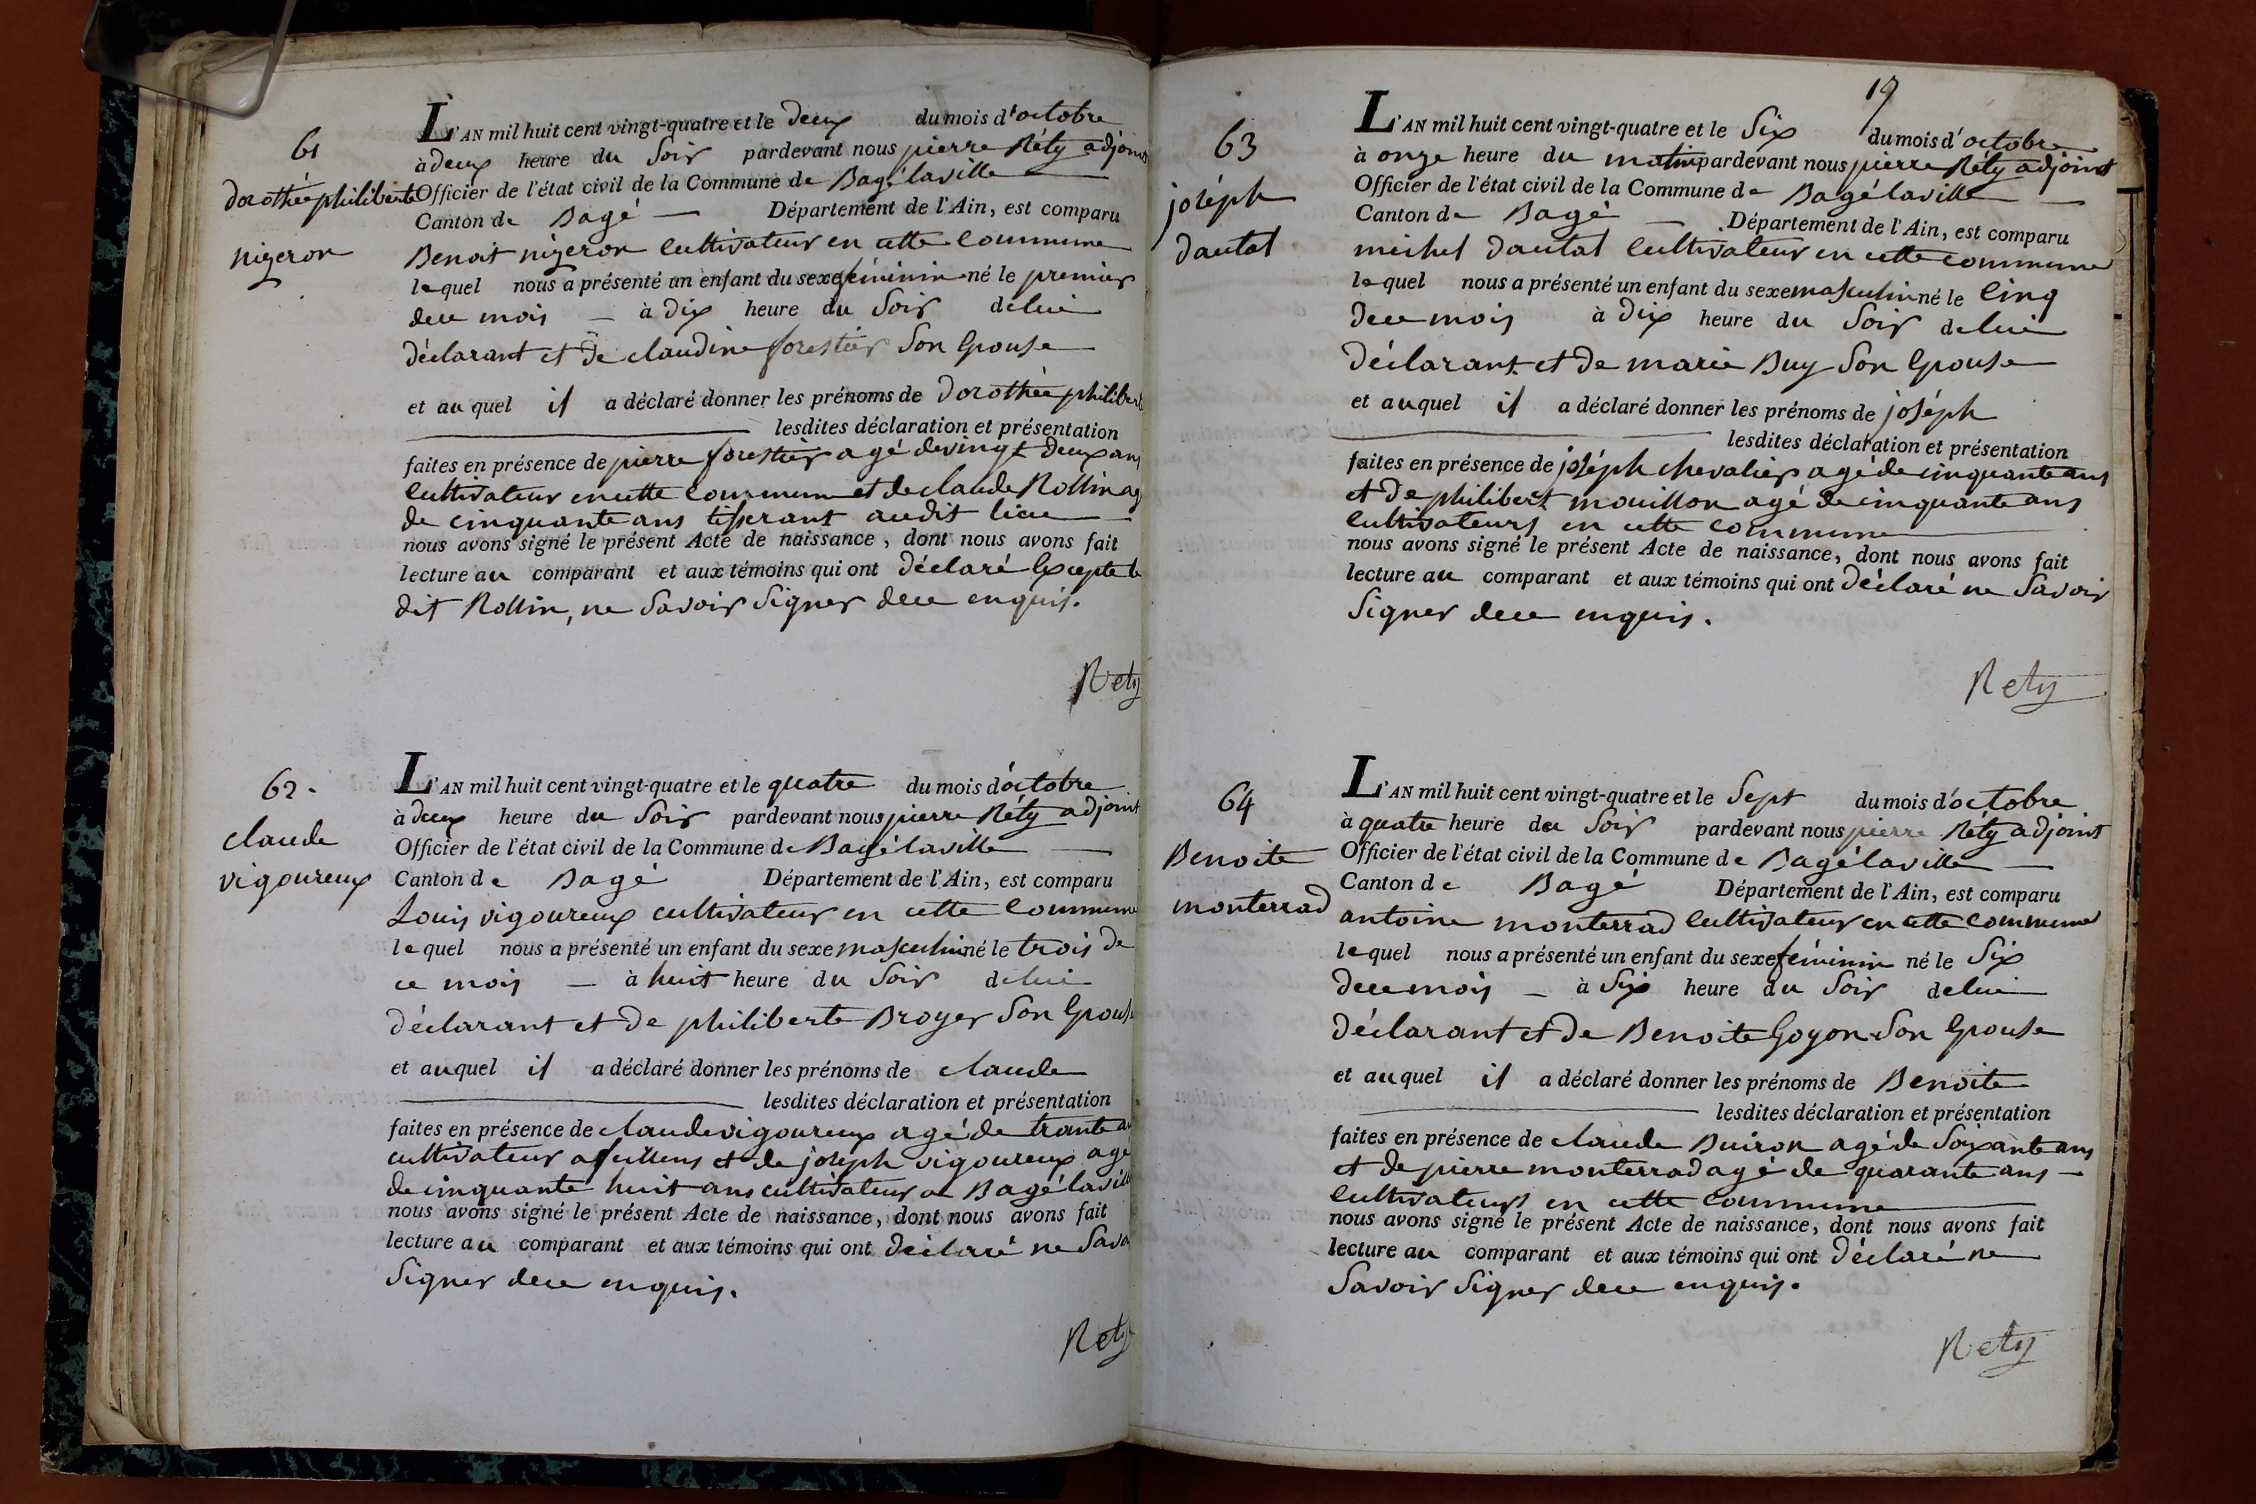 61
dorothée philiberte
nigeron
L'AN mil huit cent vingt-quatre et le deux du mois d'octobre
à deux heure du soir pardevant nous pierre Réty adjoint
Officier de l'état civil de la Commune de Bagé laville
Canton de Bagé — Département de l'Ain, est comparu
Benoit nigeron cultivateur en cette commune
lequel nous a présenté un enfant du sexe féminin né le premier
dece mois — à dix heure du soir delui
déclarant et de claudine forestier son épouse
et auquel il a déclaré donner les prénoms de dorothée philiberte
lesdites déclaration et présentation
faites en présence de pierre forestier agé devingt deux ans
cultivateur en cette commune et de claude Rollin agé
de cinquante ans tisserant audit lieu
nous avons signé le présent Acte de naissance, dont nous avons fait
lecture au comparant et aux témoins qui ont déclaré Excepte le
dit Rollin, ne savoir signer dece enquis.
Rety
62.
claude
vigoureux
L'AN mil huit cent vingt-quatre et le quatre du mois d'octobre
à deux heure du soir pardevant nous pierre Réty adjoint
Officier de l'état civil de la Commune de Bagé laville
Canton de Bagé Département de l'Ain, est comparu
Louis vigoureux cultivateur en cette commune
lequel nous a présenté un enfant du sexe masculin né le trois de
ce mois — à huit heure du soir delui
déclarant et de philiberte Broyer son épouse
et auquel il a déclaré donner les prénoms de claude
lesdites déclaration et présentation
faites en présence de claude vigoureux agé de trante ans
cultivateur a feillens et de joseph vigoureux agé
de cinquante huit ans cultivateur a Bagé laville
nous avons signé le présent Acte de naissance, dont nous avons fait
lecture au comparant et aux témoins qui ont déclaré ne savoir
signer dece enquis.
Rety
19
63
joséph
dautat
L'AN mil huit cent vingt-quatre et le six du mois d'octobre
à onze heure du matin pardevant nous pierre Réty adjoint
Officier de l'état civil de la Commune de Bagé laville
Canton de Bagé — Département de l'Ain, est comparu
michel dautat cultivateur en cette commune
lequel nous a présenté un enfant du sexe masculin né le cinq
dece mois à dix heure du soir delui
déclarant et de marie Buy son épouse
et auquel il a déclaré donner les prénoms de joséph
lesdites déclaration et présentation
faites en présence de joséph chevalier agé de cinquante ans
et de philibert mouillon agé de cinquante ans
cultivateurs en cette commune
nous avons signé le présent Acte de naissance, dont nous avons fait
lecture au comparant et aux témoins qui ont déclaré ne savoir
signer dece enquis.
Rety
64
Benoite
monterrad
L'AN mil huit cent vingt-quatre et le sept du mois d'octobre
à quatre heure du soir pardevant nous pierre Réty adjoint
Officier de l'état civil de la Commune de Bagé laville
Canton de Bagé Département de l'Ain, est comparu
antoine monterrad cultivateur en cette commune
lequel nous a présenté un enfant du sexe féminin né le six
dece mois — à six heure du soir delui
déclarant et de Benoite Goyon son épouse
et auquel il a déclaré donner les prénoms de Benoite
lesdites déclaration et présentation
faites en présence de claude Buiron agé de soixante ans
et de pierre monterrad agé de quarante ans —
cultivateurs en cette commune
nous avons signé le présent Acte de naissance, dont nous avons fait
lecture au comparant et aux témoins qui ont déclaré ne
savoir signer dece enquis.
Rety